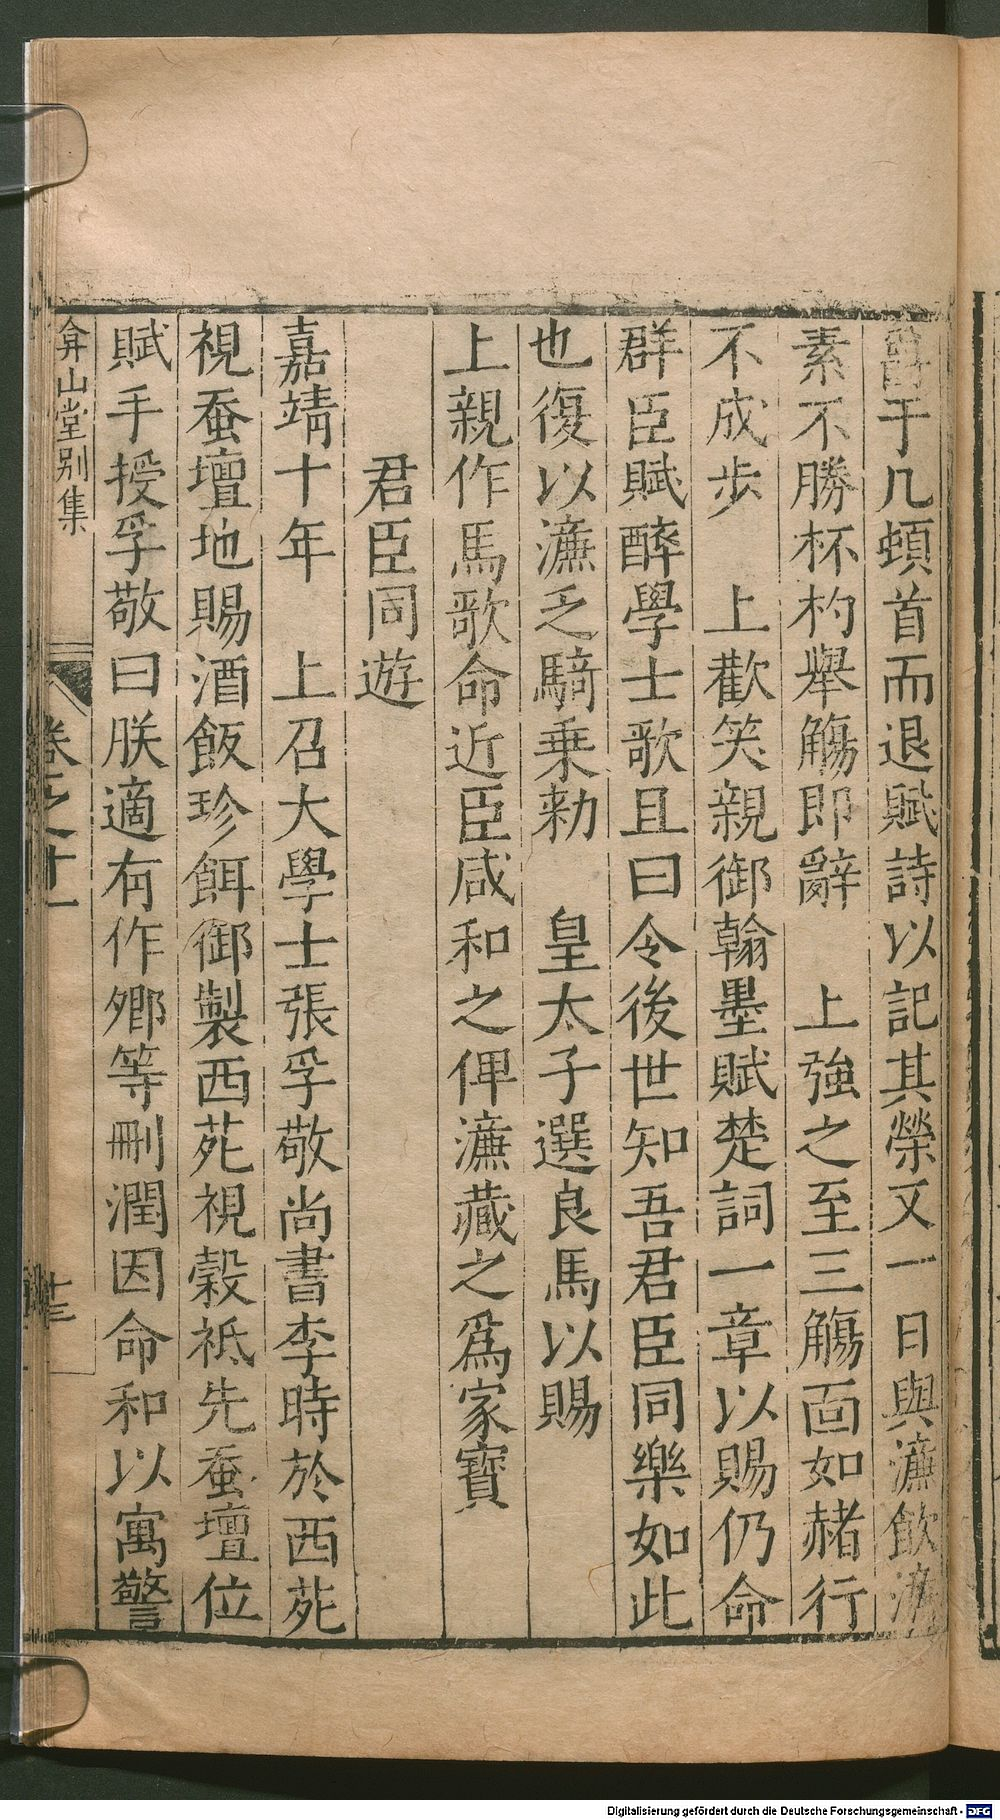 于几頓首而退賦詩以記其榮又一日與濂飲濂
素不勝杯杓舉觴即辭　上強之至三觴面如赭行
不成步　上歡笑親御翰墨賦楚詞一章以賜仍命
群臣賦醉學士歌且曰令後世知吾君臣同樂如此
也復以濂乏騎乗勑　皇太子選良馬以賜
上親作馬歌命近臣咸和之俾濂藏之爲家寶
君臣同遊
嘉靖十年　上召大學士張孚敬尚書李時於西苑
視蚕壇地賜酒飯珍餌御製西苑視穀祗先蚕壇位
賦手授孚敬曰朕適有作卿等刪潤因命和以寓警
弇山堂别集
卷之十一
十三
Digitalisierung gefördert durch die Deutsche Forschungsgemeinschaft - DFG